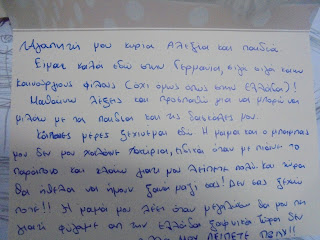 Αγαπητή μου κυρία Αλεξία και παιδιά.
Είμαι καλά εδώ στην Γερμανία, σιγα σιγα κανω
καινούργιους φιλους (όχι όμως όπως στην Ελλάδα)!
Μαθαίνω λέξεις και προσπαθώ για να μπορώ να
μιλάω με τα παιδια και τις δασκάλες μου.
Κάποιες μέρες ξεχνιέμαι εδώ Η μαμα και ο μπαμπας
μου δεν μου χαλάνε χατίρια, όταν με πιάνει το
παράπονο και κλαίω γιατι μου λείπετε πολύ. Και τώρα
θα ήθελα να ήμουν ξανα μαζι σας! Δεν σας ξεχνώ
ποτέ!! Η μαμά μου λέει όταν μεγαλώσω θα μου πει
γιατί φύγαμε απ την Ελλάδα ξαφνικά τώρα δεν
ΜΟΥ ΛΕΙΠΕΤΕ ΠΟΛΥ!!